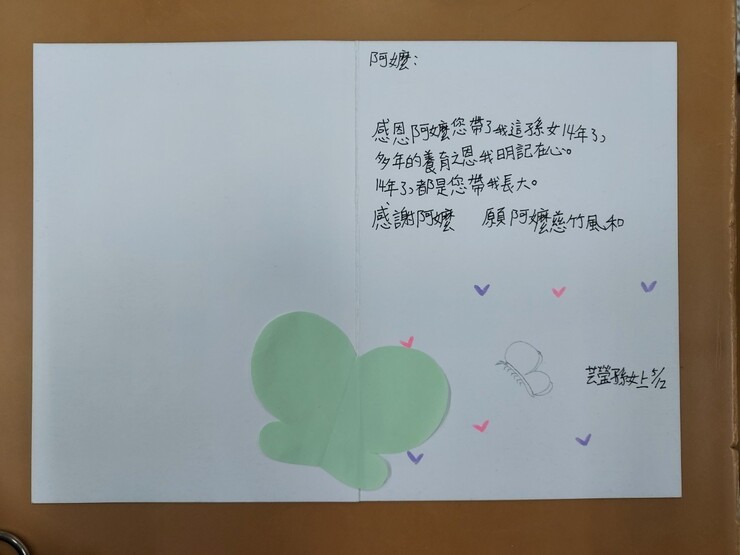 阿嬤：
感恩阿嬤您帶了我這孫女14年了,
多年的養育之恩我明記在心。
14年了,都是您帶我長大。
感謝阿嬤　願阿嬤慈竹風和
芸瑩孫女上 5/12